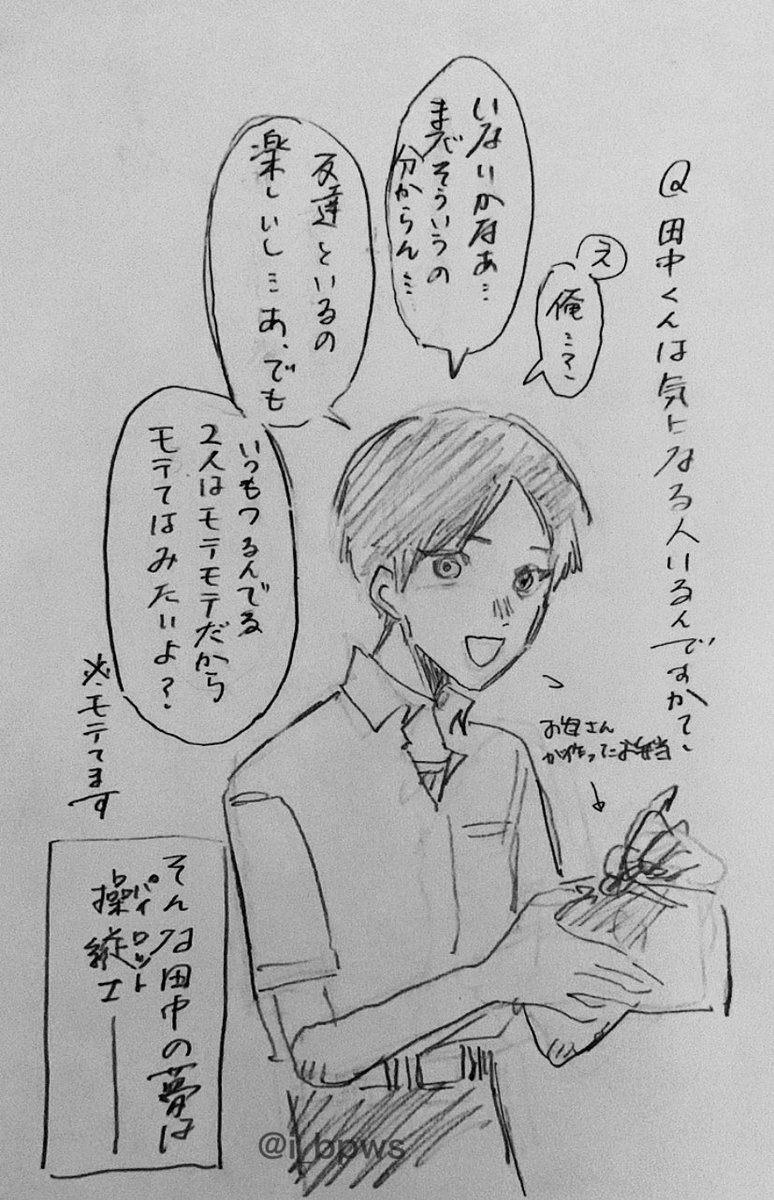 Q 田中くんは気になる人いるんですかて、
え
俺…?
いないかなぁ…
まだそういうの
分からん…
友達といるの
楽しいし…あ、でも
いつもつるんでる
2人はモテモテだから
モテてはみたいよ?
※モテてます
お母さん
が作ったお弁当
そんな田中の夢は
操縦士――
パイロット
@i_bpws